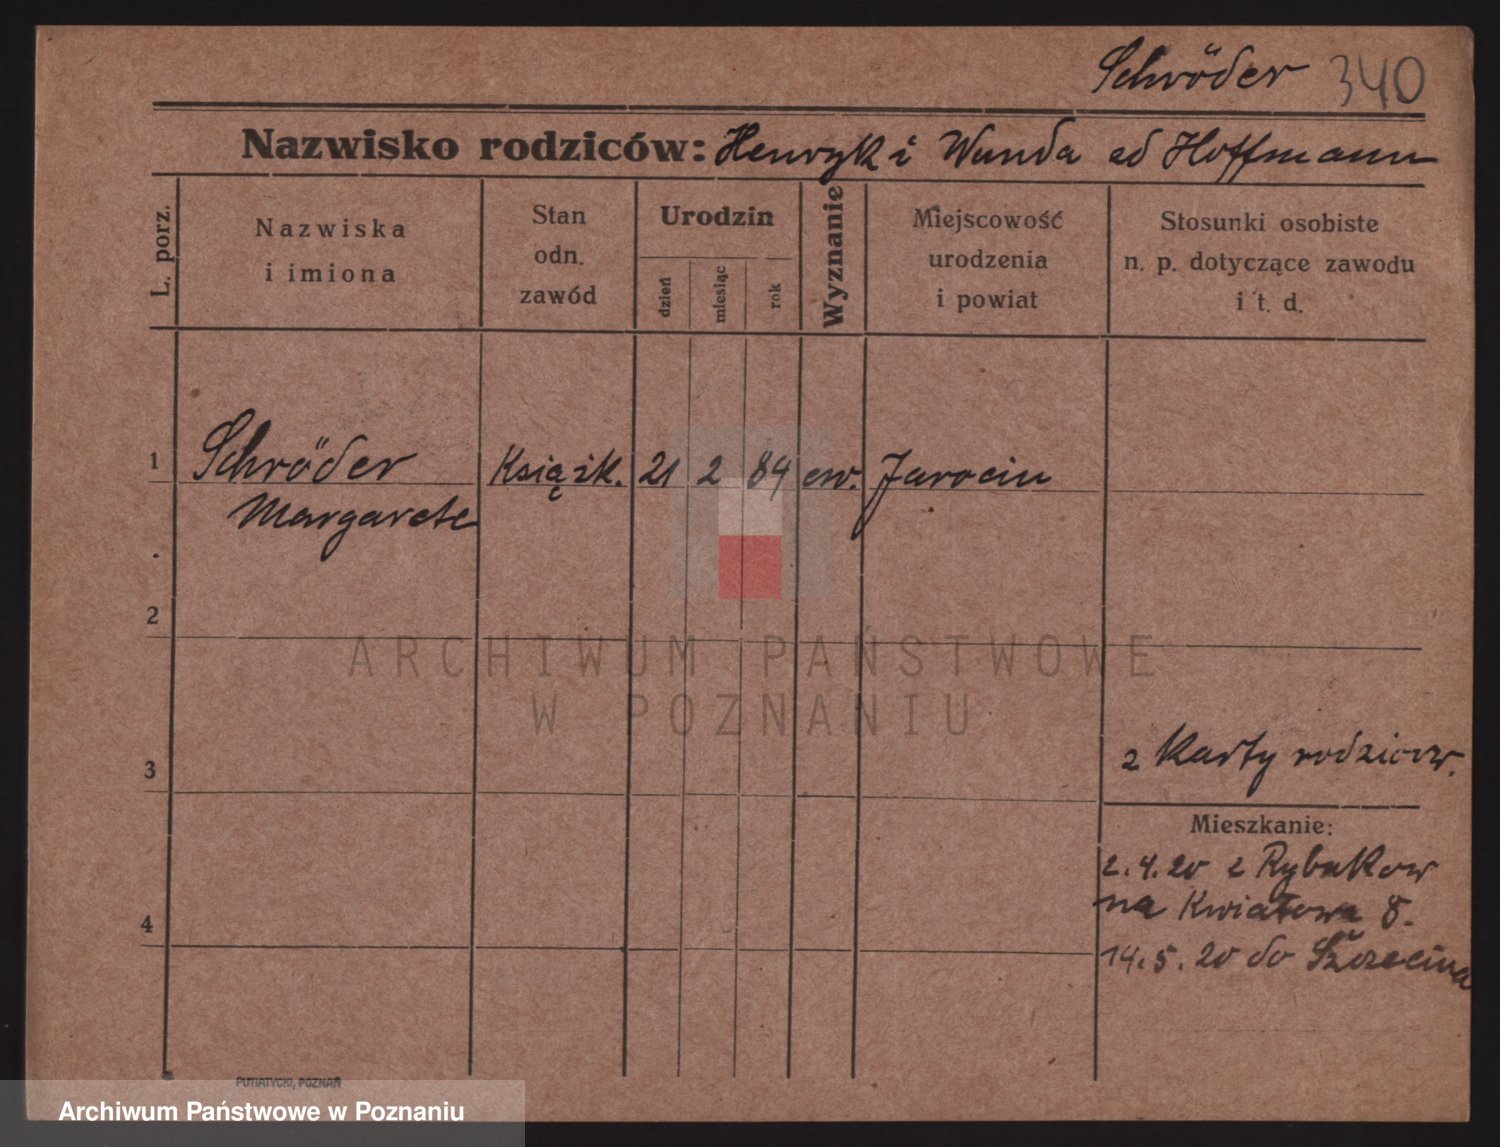 Schröder 340
Nazwisko rodziców: Henryk i Wanda od Hoffmann
L. porz.
Nazwiska
i imiona
Stan
odn.
zawód
Urodzin
dzień
miesiąc
rok
Wyznanie
Miejscowość
urodzenia
i powiat
Stosunki osobiste
n. p. dotyczące zawodu
i t. d.
1 Schröder Książk. 21 2 84 ew. Jarocin
Margarete
2
ARCHIWUM PAŃSTWOWE
W POZNANIU
z Karty rodzicow.
3
Mieszkanie:
2.4.20 z Rybakow
na Kwiatowa 8.
4
14.5.20 do Szczecina
PUTIATYCKI, POZNAŃ
Archiwum Państwowe w Poznaniu